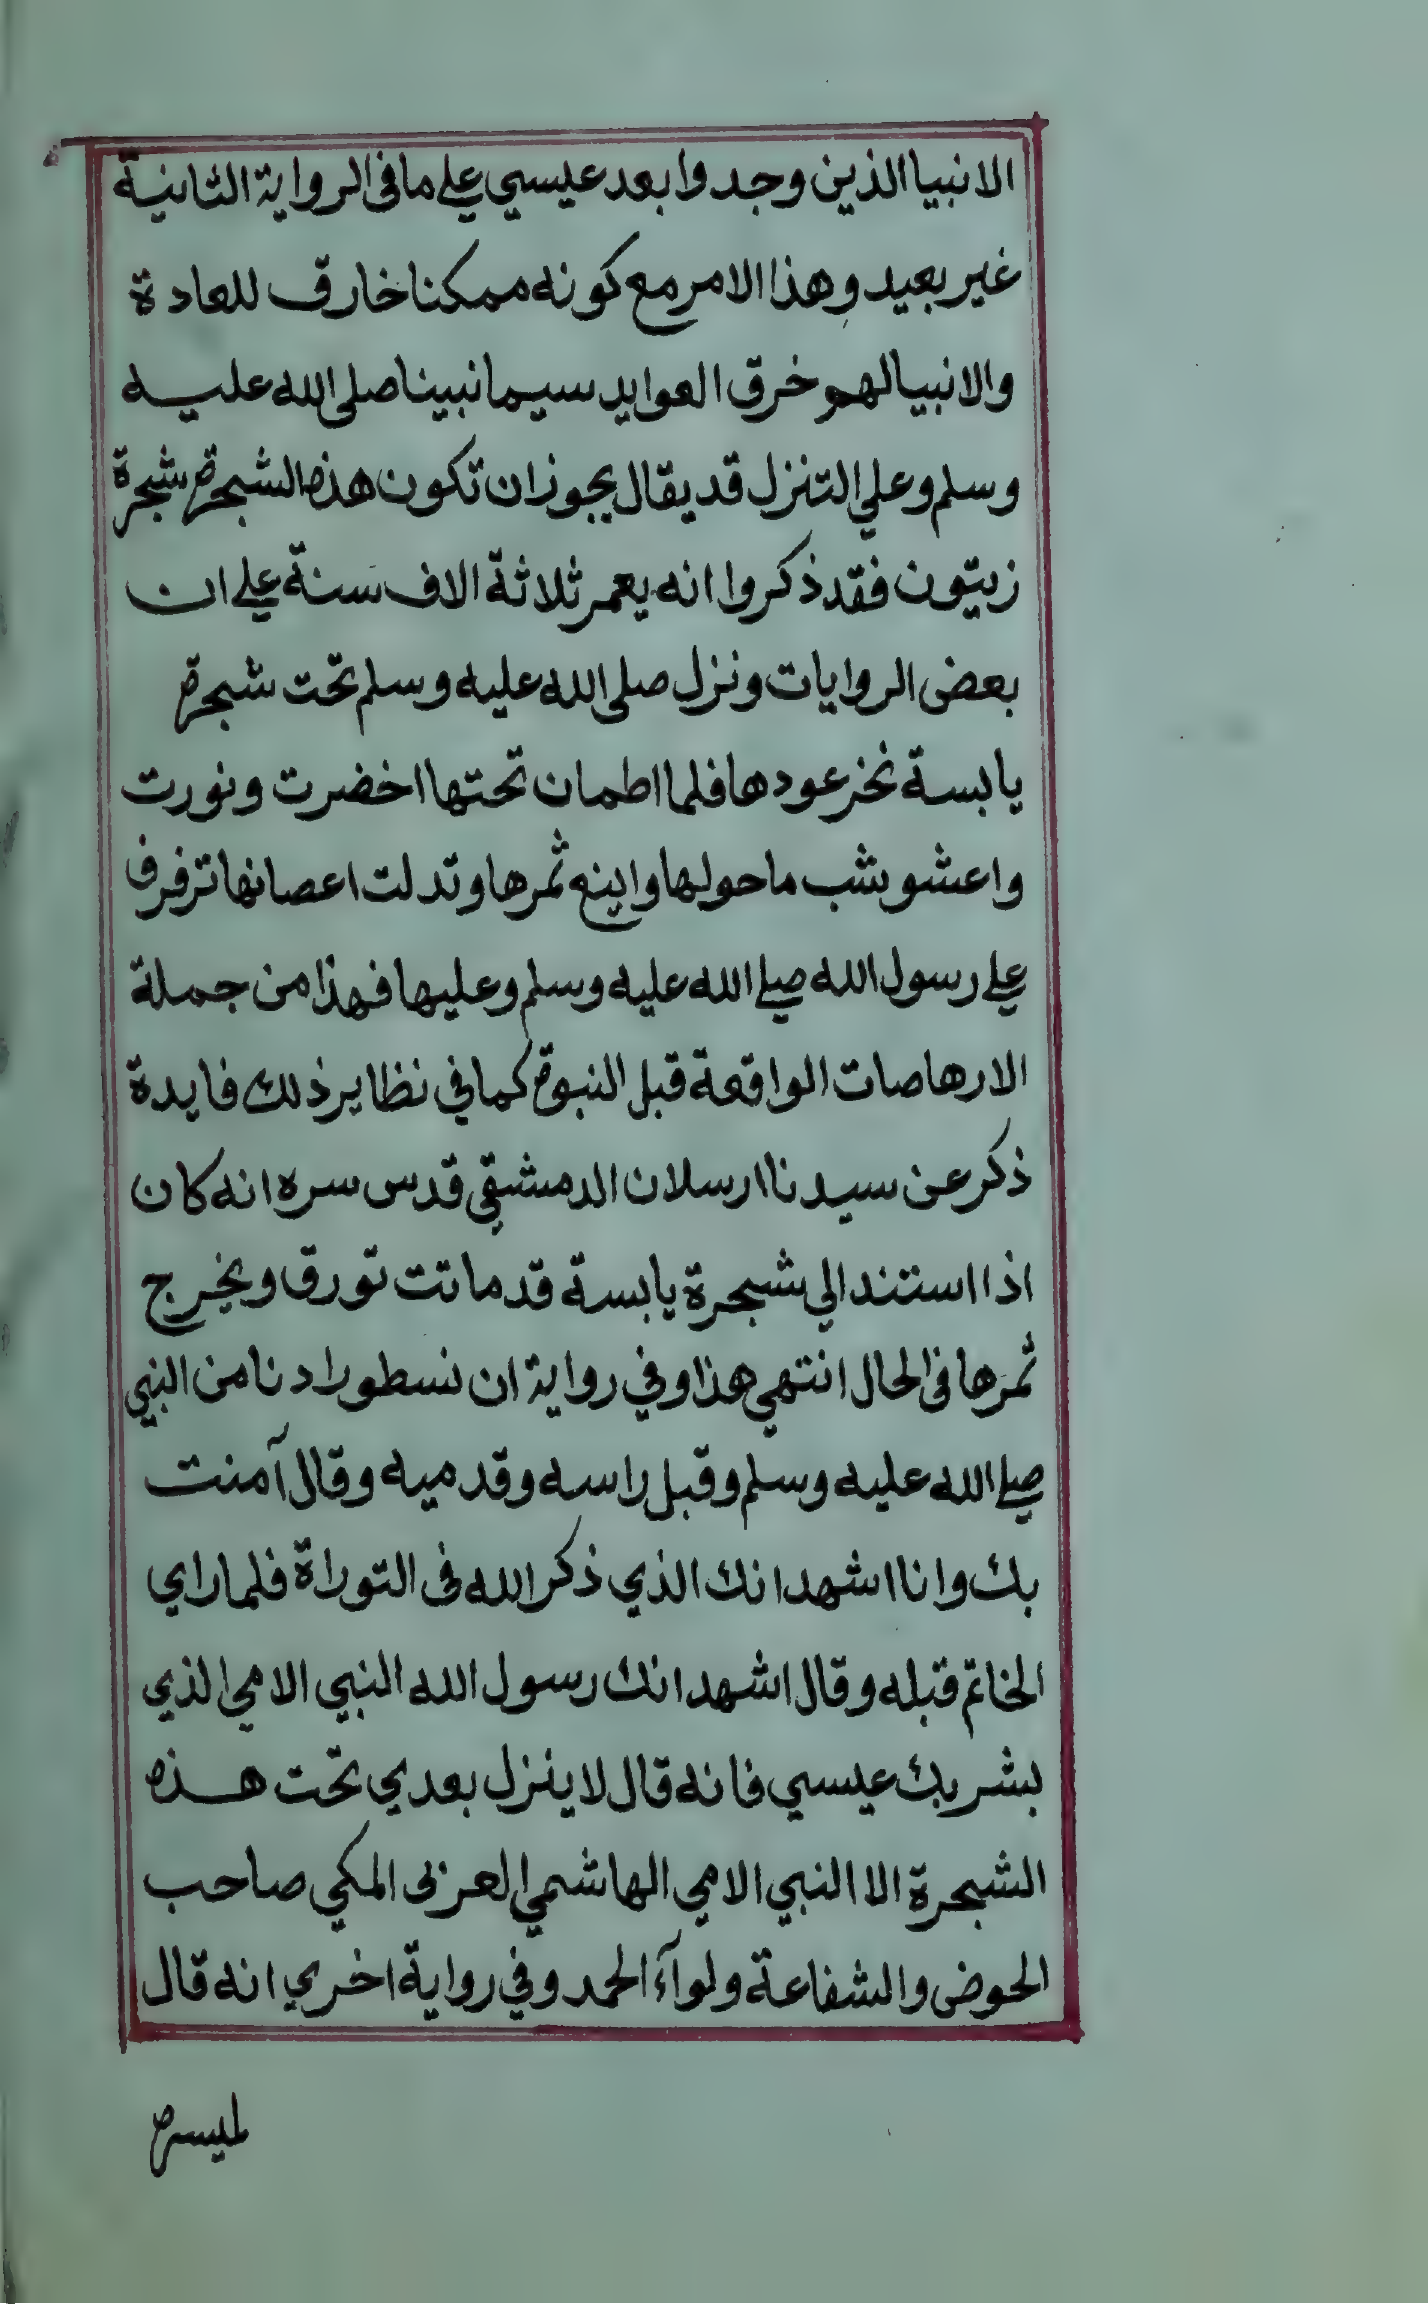 الانبيا الذين وجدوا بعد عيسي علي ما في الرواية الثانية
غير بعيد وهذا الامر مع كونه ممكنا خارق للعادة
والانبيا لهم خرق العوايد سيما نبينا صلى الله عليه
وسلم وعلي التنزل قد يقال يجوز ان تكون هذه الشجرة شجرة
زيتون فقد ذكروا انه يعمر ثلاثة الاف سنة علي ان
بعض الروايات ونزل صلى الله عليه وسلم تحت شجرة
يابسة نخر عودها فلما اطمان تحتها اخضرت ونورت
واعشوشب ما حولها واينع ثمرها وتدلت اعصانها ترفرف
علي رسول الله صلي الله عليه وسلم وعليها فهذا من جملة
الارهاصات الواقعة قبل النبوة كما في نظاير ذلك فايدة
ذكر عن سيدنا ارسلان الدمشقي قدس سره انه كان
اذا استند الي شجرة يابسة قد ماتت تورق ويخرج
ثمرها في الحال انتهي هذا وفي رواية ان نسطورا دنا من النبي
صلي الله عليه وسلم وقبل راسه وقدميه وقال آمنت
بك وانا اشهد انك الذي ذكر الله في التوراة فلما راي
الخاتم قبله وقال اشهد انك رسول الله النبي الامي الذي
بشر بك عيسي فانه قال لا ينزل بعدي تحت هذه
الشجرة الا النبي الامي الهاشمي العربي المكي صاحب
الحوض والشفاعة ولوآء الحمد وفي رواية اخري انه قال
لميسرة